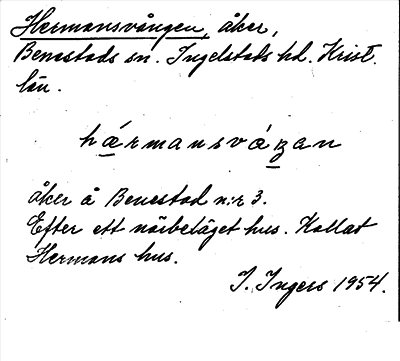 Hermansvången, åker,
Benestads sn. Ingelstads hd. Krist.
län.
hármansvázan
åker å Benestad n:r 3.
Efter ett närbeläget hus. Kallat
Hermans hus.
I. Ingers 1954.